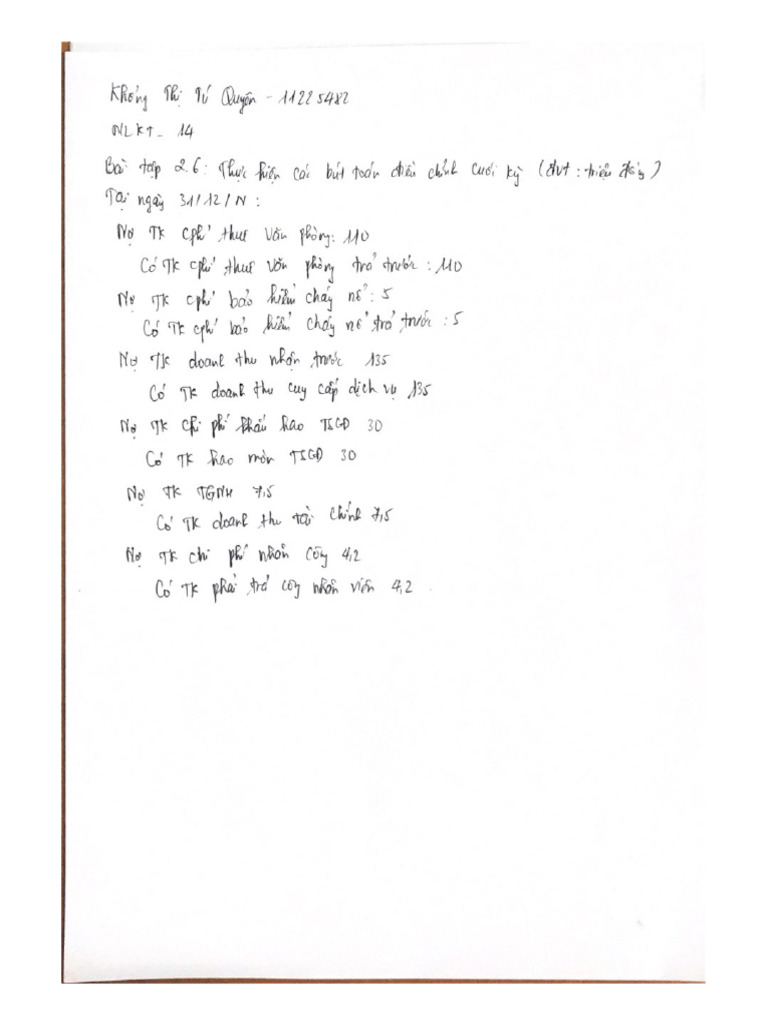 Khổng Thị Tú Quyên - 11225482
NLKT - 14
Bài tập 2.6: Thực hiện các bút toán điều chỉnh cuối kỳ (đvt: triệu đồng)
Tại ngày 31/12/N:
Nợ TK cphí thuê văn phòng: 110
Có TK cphí thuê văn phòng trả trước: 110
Nợ TK cphí bảo hiểm cháy nổ: 5
Có TK cphí bảo hiểm cháy nổ trả trước: 5
Nợ TK doanh thu nhận trước 135
Có TK doanh thu cug cấp dịch vụ 135
Nợ TK chi phí khấu hao TSCĐ 30
Có TK hao mòn TSCĐ 30
Nợ TK TGNH 7,5
Có TK doanh thu tài chính 7,5
Nợ TK chi phí nhân công 4,2
Có TK phải trả côg nhân viên 4,2